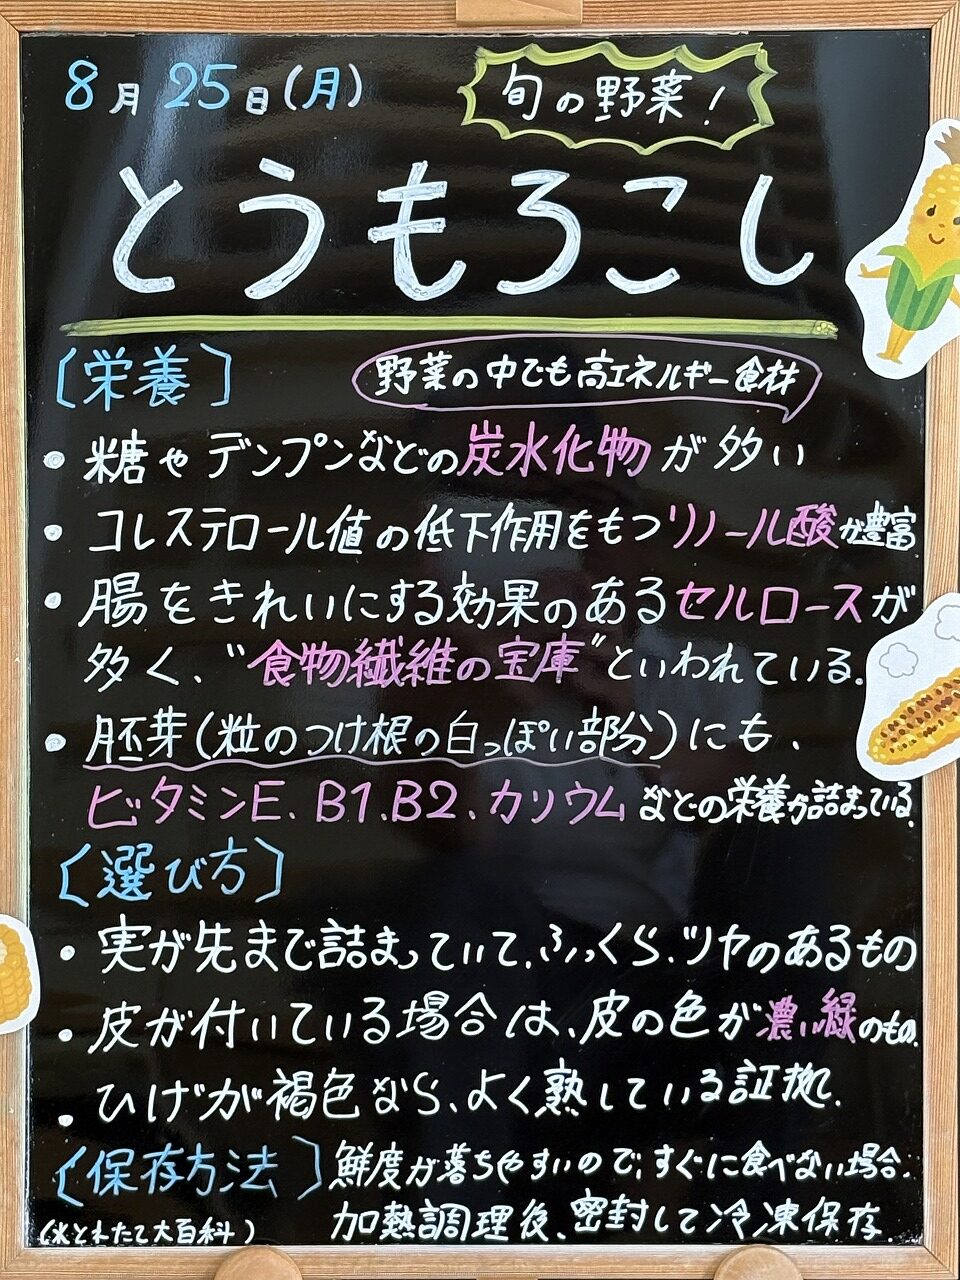 8月25日(月)
旬の野菜！
とうもろこし
〔栄養〕
野菜の中でも高エネルギー食材
・糖やデンプンなどの炭水化物が多い
・コレステロール値の低下作用をもつリノール酸が豊富.
・腸をきれいにする効果のあるセルロースが
多く、“食物繊維の宝庫”といわれている.
・胚芽(粒のつけ根の白っぽい部分)にも、
ビタミンE、B1、B2、カリウムなどの栄養が詰まっている.
〔選び方〕
・実が先まで詰まっていて、ふっくら、ツヤのあるもの
・皮が付いている場合は、皮の色が濃い緑のもの.
・ひげが褐色なら、よく熟している証拠.
〔保存方法〕鮮度が落ちやすいので、すぐに食べない場合、
加熱調理後、密封して冷凍保存.
(※とれたて大百科)